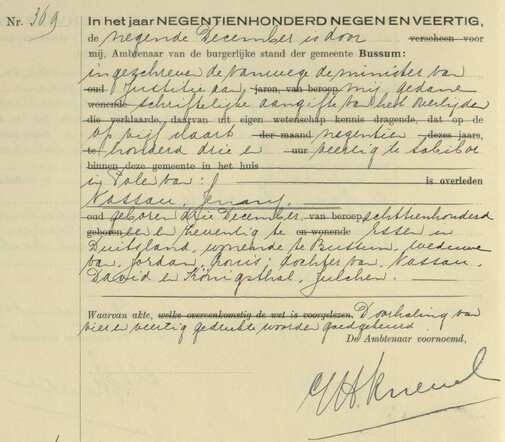 Nr. 369
In het jaar NEGENTIENHONDERD NEGEN EN VEERTIG,
de negende December is door verscheen voor
mij, Ambtenaar van de burgerlijke stand der gemeente Bussum:
ingeschreven de vanwege de minister van
oud Justitie aan jaren, van beroep mij gedane
wonende schriftelijke aangifte van het overlijden
die verklaarde, daarvan uit eigen wetenschap kennis dragende, dat op de
op vijf maart der maand negentien dezes jaars,
te honderd drie en uur veertig te Sobibor
binnen deze gemeente in het huis
in Polen van: is overleden
Nassau,
oud geboren drie December, van beroep achttienhonderd
geboren een en zeventig te en wonende Essen in
Duitsland, wonende te Bussum, weduwe
van Jordan, Louis; dochter van Nassau,
David en Königsthal, Julchen.
Waarvan akte, welke overeenkomstig de wet is voorgelezen. Doorhaling van
vier en veertig gedrukte woorden goedgekeurd.
De Ambtenaar voornoemd,